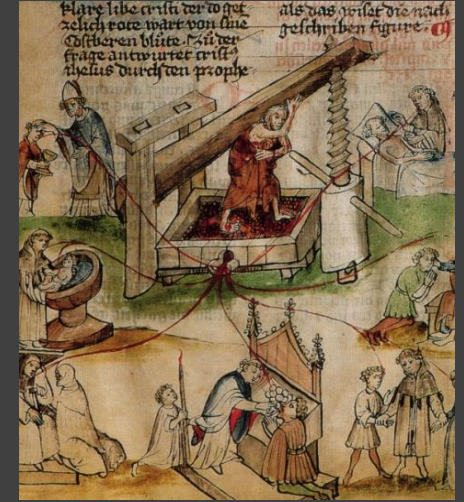 klare libe cristi der do get
zelich rote wart von sine
Costberen blůte. Zů der
frage antwurtet crist
ihesus durch den prophe
als das wiset die nach
geschriben figure.